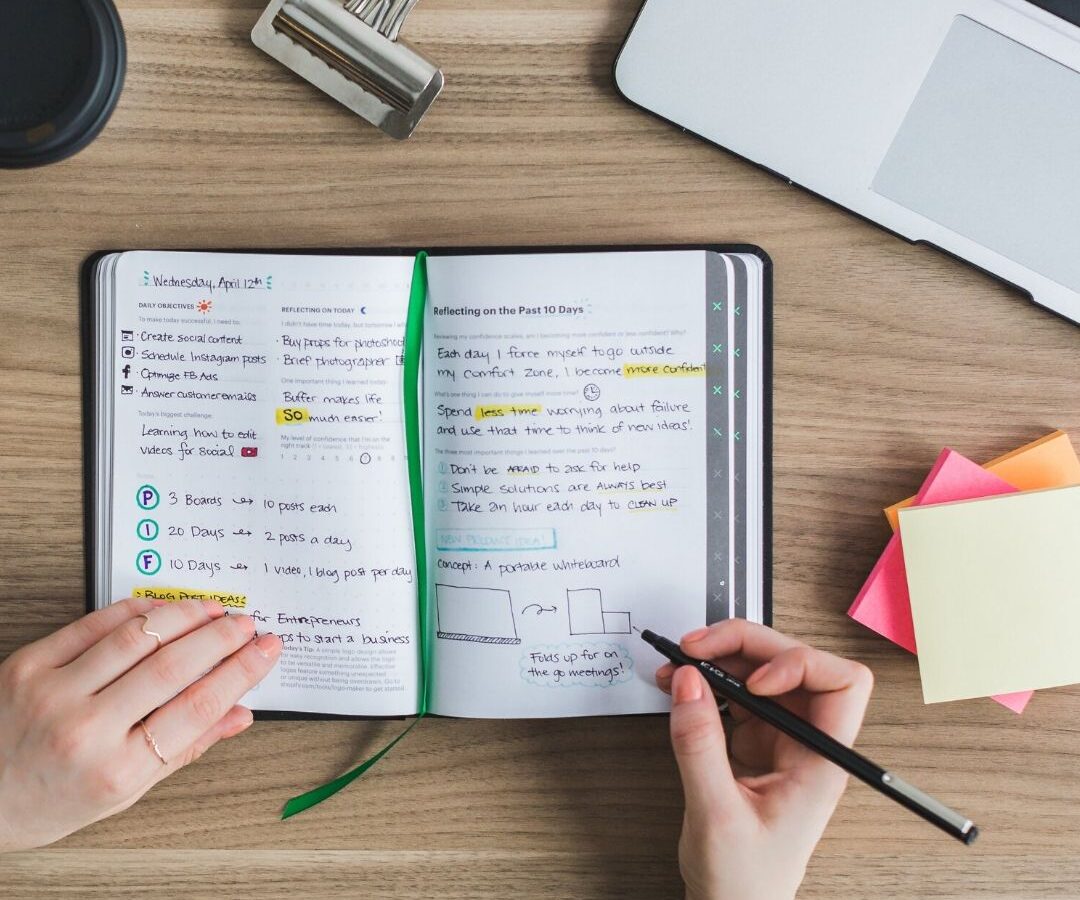 Wednesday, April 12th
DAILY OBJECTIVES
To make today successful, I need to:
· Create social content
· Schedule Instagram posts
f · Optimize FB Ads
· Answer customer emails
Today's biggest challenge:
Learning how to edit
videos for social
P 3 Boards → 10 posts each
I 20 Days → 2 posts a day
F 10 Days → 1 video, 1 blog post per day
BLOG POST IDEAS
for Entrepreneurs
to start a business
REFLECTING ON TODAY
I didn't have time today, but tomorrow I will
· Buy props for photoshoot
· Brief photographer
One important thing I learned today:
Buffer makes life
SO much easier!
My level of confidence that I'm on the
right track (1 = lowest, 10 = highest):
1 2 3 4 5 6 7 8 9
Today's Tip: A simple logo design allows
for easy recognition and allows the logo
to be versatile and memorable. Effective
logos feature something unexpected
or unique without being overdrawn. Go to
shopify.com/tools/logo-maker to get started.
Reflecting on the Past 10 Days
Reviewing my confidence scales, am I becoming more confident or less confident? Why?
Each day I force myself to go outside
my comfort zone, I become more confident
What's one thing I can do to give myself more time?
Spend less time worrying about failure
and use that time to think of new ideas!
The three most important things I learned over the past 10 days:
1 Don't be AFRAID to ask for help
2 Simple solutions are ALWAYS best
3 Take an hour each day to CLEAN UP
NEW PRODUCT IDEA!
Concept: A portable whiteboard
Folds up for on
the go meetings!